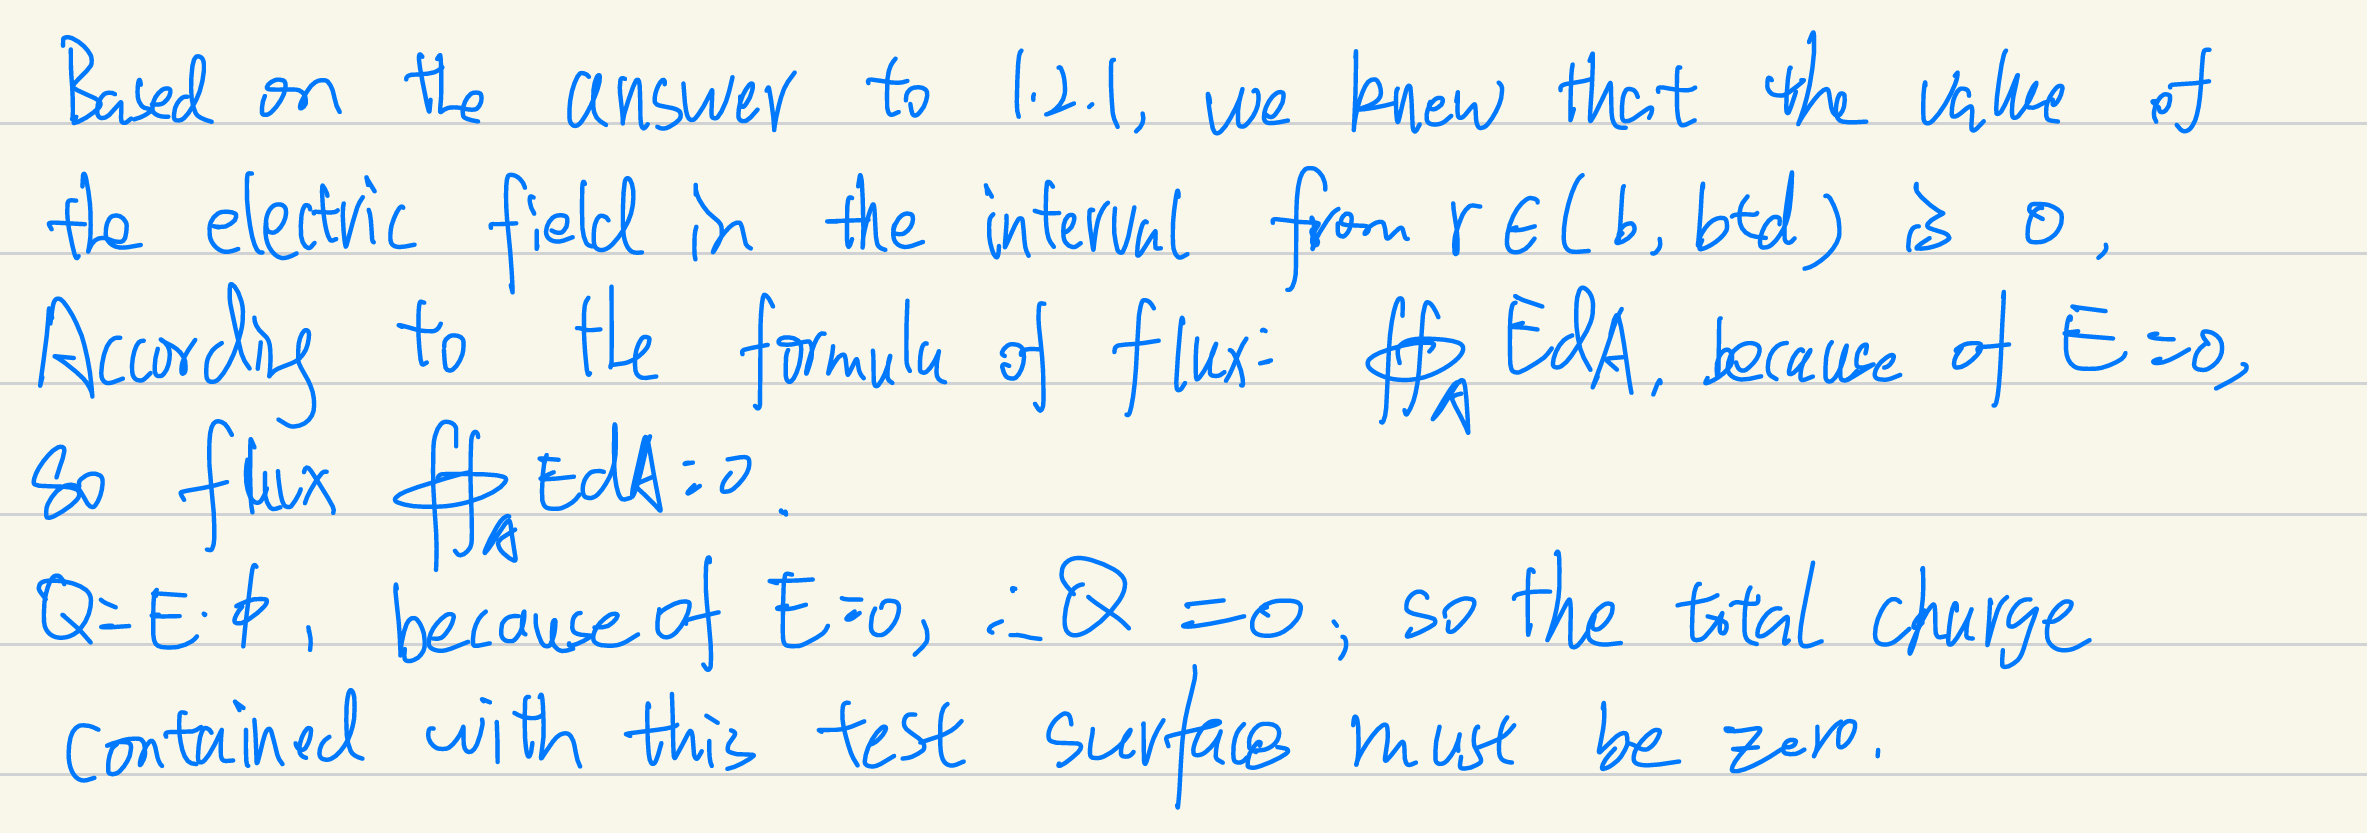 Based on the answer to 1.2.1, we knew that the value of
the electric field in the interval from r∈(b, b+d) is 0,
According to the formula of flux: ∯_A EdA, because of E=0,
so flux ∯_A EdA=0.
Q=E·ϕ, because of E=0, ∴Q=0, so the total charge
contained with this test surface must be zero.